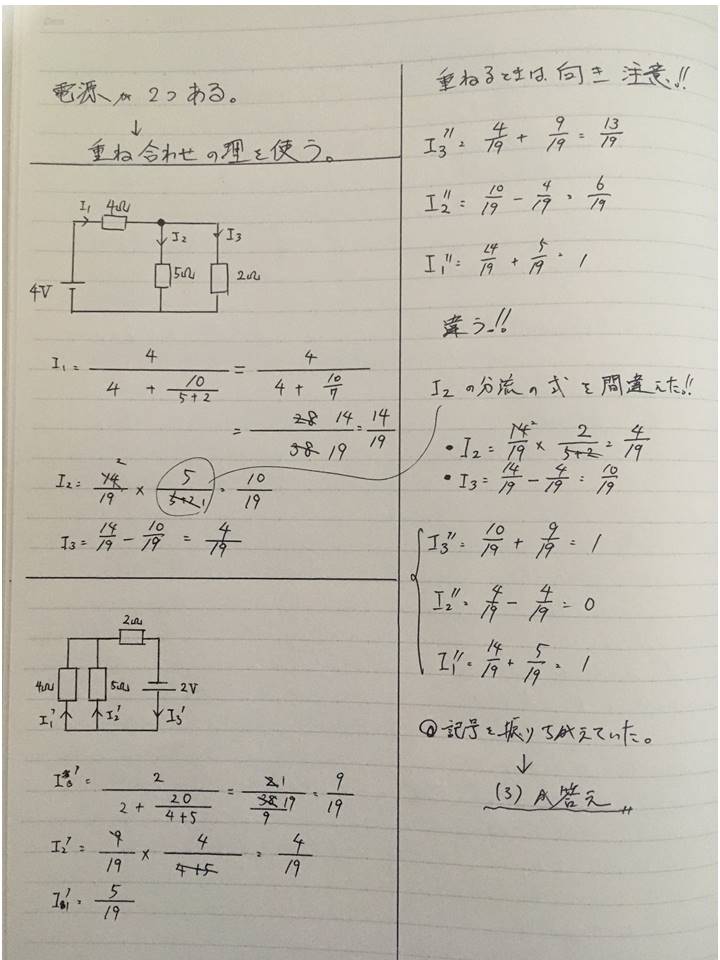 電源が2つある。
↓
重ね合わせの理を使う。
I₁ 4Ω
I₂ I₃
5Ω 2Ω
4V
I₁ = 4 / (4 + 10/(5+2)) = 4 / (4 + 10/7)
= 28 14 / 38 19 = 14/19
I₂ = 14 2/19 × 5/(5+2) 1 = 10/19
I₃ = 14/19 − 10/19 = 4/19
2Ω
4Ω 5Ω 2V
I₁' I₂' I₃'
I₃' = 2 / (2 + 20/(4+5)) = 2 1 / (38 19/9) = 9/19
I₂' = 9/19 × 4/(4+5) = 4/19
I₁' = 5/19
重ねるときは向き注意!!
I₃'' = 4/19 + 9/19 = 13/19
I₂'' = 10/19 − 4/19 = 6/19
I₁'' = 14/19 + 5/19 = 1
違う!!
I₂の分流の式を間違えた!!
• I₂ = 14 2/19 × 2/(5+2) = 4/19
• I₃ = 14/19 − 4/19 = 10/19
I₃'' = 10/19 + 9/19 = 1
I₂'' = 4/19 − 4/19 = 0
I₁'' = 14/19 + 5/19 = 1
記号を振りちがえていた。
↓
(3)が答え